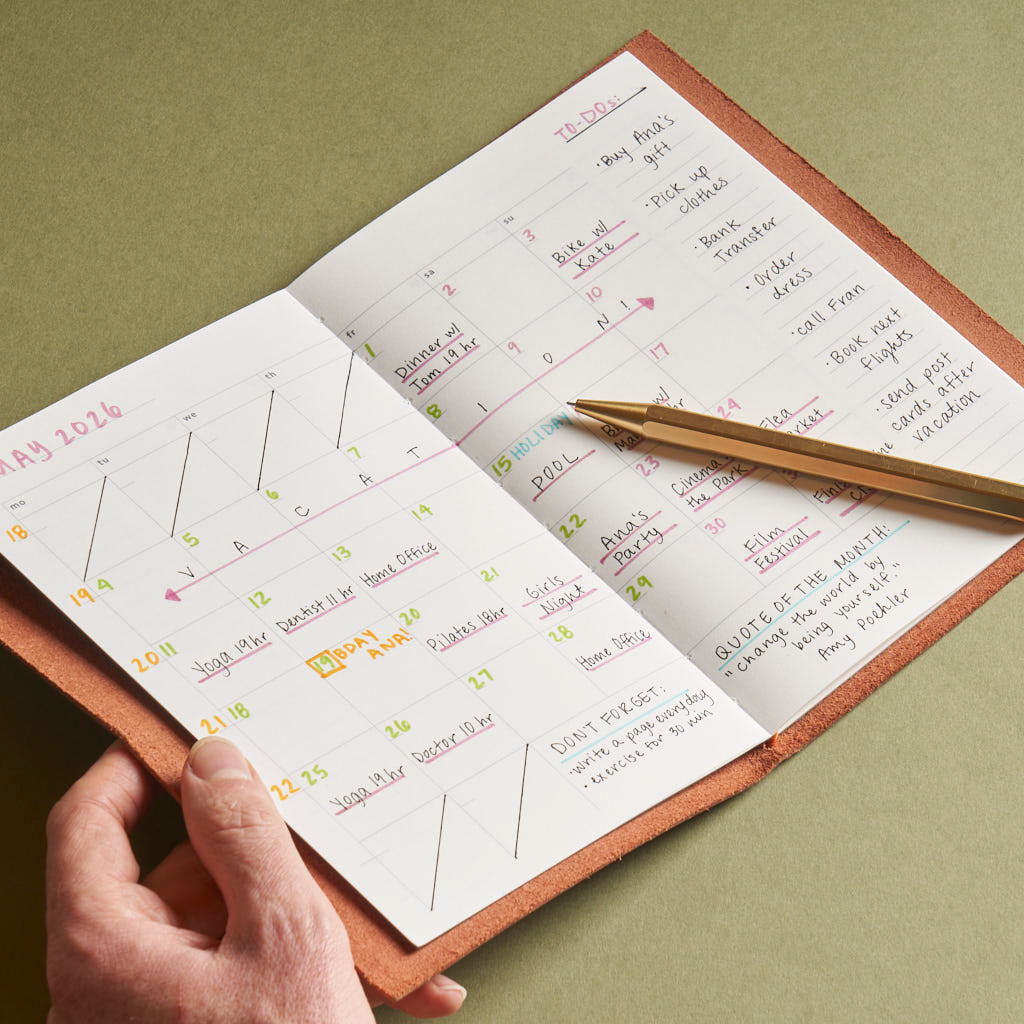 MAY 2026
mo
tu
we
th
fr
sa
su
18
1
2
3
Dinner w/
Tom 19 hr
Bike w/
Kate
19
4
5
6
7
8
9
10
V A C A T I O N !
20
11
12
13
14
15 HOLIDAY
17
Yoga 19hr
Dentist 11 hr
Home Office
POOL
w/
hr
Flea
21
18
19 BDAY
ANA!
20
21
22
23
24
Pilates 18hr
Girls
Night
Ana's
Party
Cinema
the Park
22
25
26
27
28
29
30
Yoga 19hr
Doctor 10 hr
Home Office
Film
Festival
DONT FORGET:
· Write a page everyday
· exercise for 30 min
TO-DOs:
· Buy Ana's
gift
· Pick up
clothes
· Bank
Transfer
· Order
dress
· call Fran
· Book next
flights
· send post
cards after
vacation
QUOTE OF THE MONTH:
"change the world by
being yourself."
Amy Poehler